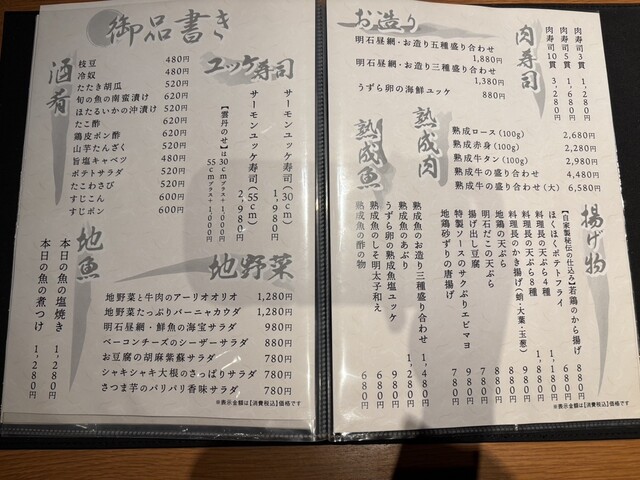 御品書き
酒肴
枝豆 480円
冷奴 480円
たたき胡瓜 520円
旬の魚の南蛮漬け 620円
ほたるいかの沖漬け 620円
たこ酢 620円
鶏皮ポン酢 620円
山芋たんざく 520円
旨塩キャベツ 480円
ポテトサラダ 520円
たこわさび 520円
すじこん 600円
すじポン 600円
ユッケ寿司
サーモンユッケ寿司(30cm) 1,980円
サーモンユッケ寿司(55cm) 2,980円
【雲丹のせ】は30cmプラス+1,000円
55cmプラス+1,000円
地魚
本日の魚の塩焼き 1,280円
本日の魚の煮つけ 1,280円
地野菜
地野菜と牛肉のアーリオオリオ 1,280円
地野菜たっぷりバーニャカウダ 1,280円
明石昼網・鮮魚の海宝サラダ 980円
ベーコンチーズのシーザーサラダ 880円
お豆腐の胡麻紫蘇サラダ 780円
シャキシャキ大根のさっぱりサラダ 780円
さつま芋のパリパリ香味サラダ 780円
※表示金額は【消費税込】価格です
お造り
明石昼網・お造り五種盛り合わせ
1,880円
明石昼網・お造り三種盛り合わせ
1,380円
うずら卵の海鮮ユッケ 880円
肉寿司
肉寿司3貫 1,280円
肉寿司5貫 1,680円
肉寿司10貫 3,280円
熟成肉
熟成ロース(100g) 2,680円
熟成赤身(100g) 2,280円
熟成牛タン(100g) 2,980円
熟成牛の盛り合わせ 4,480円
熟成牛の盛り合わせ(大) 6,580円
熟成魚
熟成魚のお造り三種盛り合わせ 1,480円
熟成魚のあぶり 1,280円
うずら卵の熟成魚塩ユッケ 980円
熟成魚のしそ明太子和え 680円
熟成魚の酢の物 680円
揚げ物
【自家製秘伝の仕込み】若鶏のから揚げ 880円
ほくほくポテトフライ 580円
料理長の天ぷら4種 1,180円
料理長の天ぷら8種 1,880円
料理長のかき揚げ(蛸・大葉・玉葱) 880円
地鶏の天ぷら 880円
明石だこの天ぷら 880円
揚げ出し豆腐 780円
特製ソースのサクぷりエビマヨ 980円
地鶏砂ずりの唐揚げ 780円
※表示金額は【消費税込】価格です